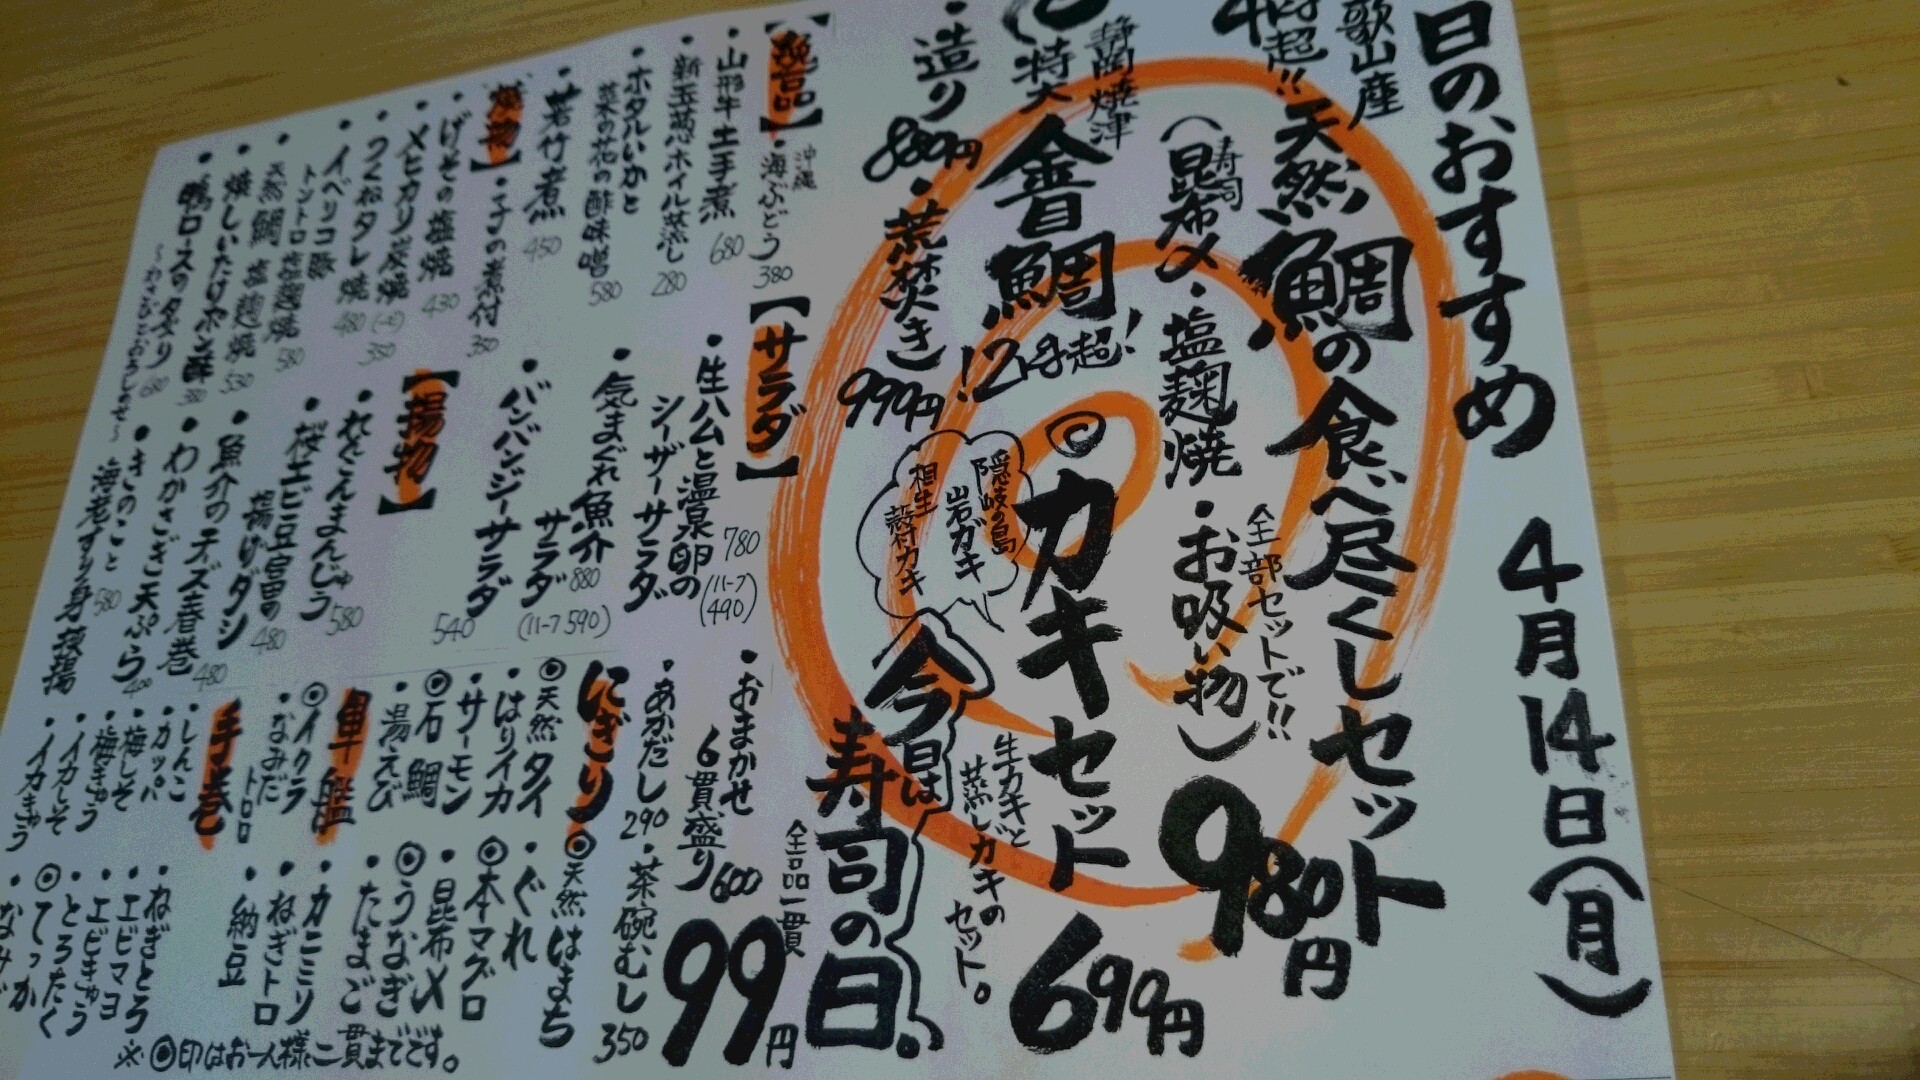 日のおすすめ 4月14日(月)
歌山産
超!!天然鯛の食べ尽くしセット
(寿司
昆布〆・塩麹焼・お吸い物)
全部セットで!!
980円
静岡焼津
特大金目鯛
超!
・造り880円
・荒焚き)999円
◎カキセット
699円
隠岐の島
岩ガキ
相生
殻付カキ
生カキと
蒸しガキの
セット。
今日は
寿司の日。
全品一貫
99円
・おまかせ
6貫盛り600
・あかだし290
・茶碗むし350
にぎり
◎天然タイ
・はりイカ
・サーモン
◎石鯛
・湯えび
◎天然はまち
・ぐれ
◎本マグロ
・昆布〆
◎うなぎ
・たまご
軍艦
◎イクラ
・なみだ
トロロ
・カニミソ
・ねぎトロ
・納豆
手巻
・しんこ
・カッパ
・梅しそ
・梅きゅう
・イカしそ
・イカきゅう
・ねぎとろ
・エビマヨ
・エビきゅう
・とろたく
◎てっか
※◎印はお一人様二貫までです。
【サラダ】
・生ハムと温泉卵の
シーザーサラダ
780
(ハーフ490)
・気まぐれ魚介
サラダ
880
(ハーフ590)
・バンバンジーサラダ
540
【揚物】
・れんこんまんじゅう580
・桜エビ豆冨の
揚げダシ480
・魚介のチーズ春巻480
・わかさぎ天ぷら400
・きのこと
海老すり身挟揚580
・沖縄
海ぶどう380
・山形牛土手煮680
・新玉葱ホイル蒸し280
・ホタルいかと
菜の花の酢味噌580
・若竹煮450
焼物】
・げその塩焼430
・メヒカリ炭焼350
・つくねタレ焼480
・イベリコ豚
トントロ塩麹焼580
・天然鯛塩麹焼530
・焼しいたけポン酢380
・鴨ロースの炙り680
〜わさびとおろしのせ〜